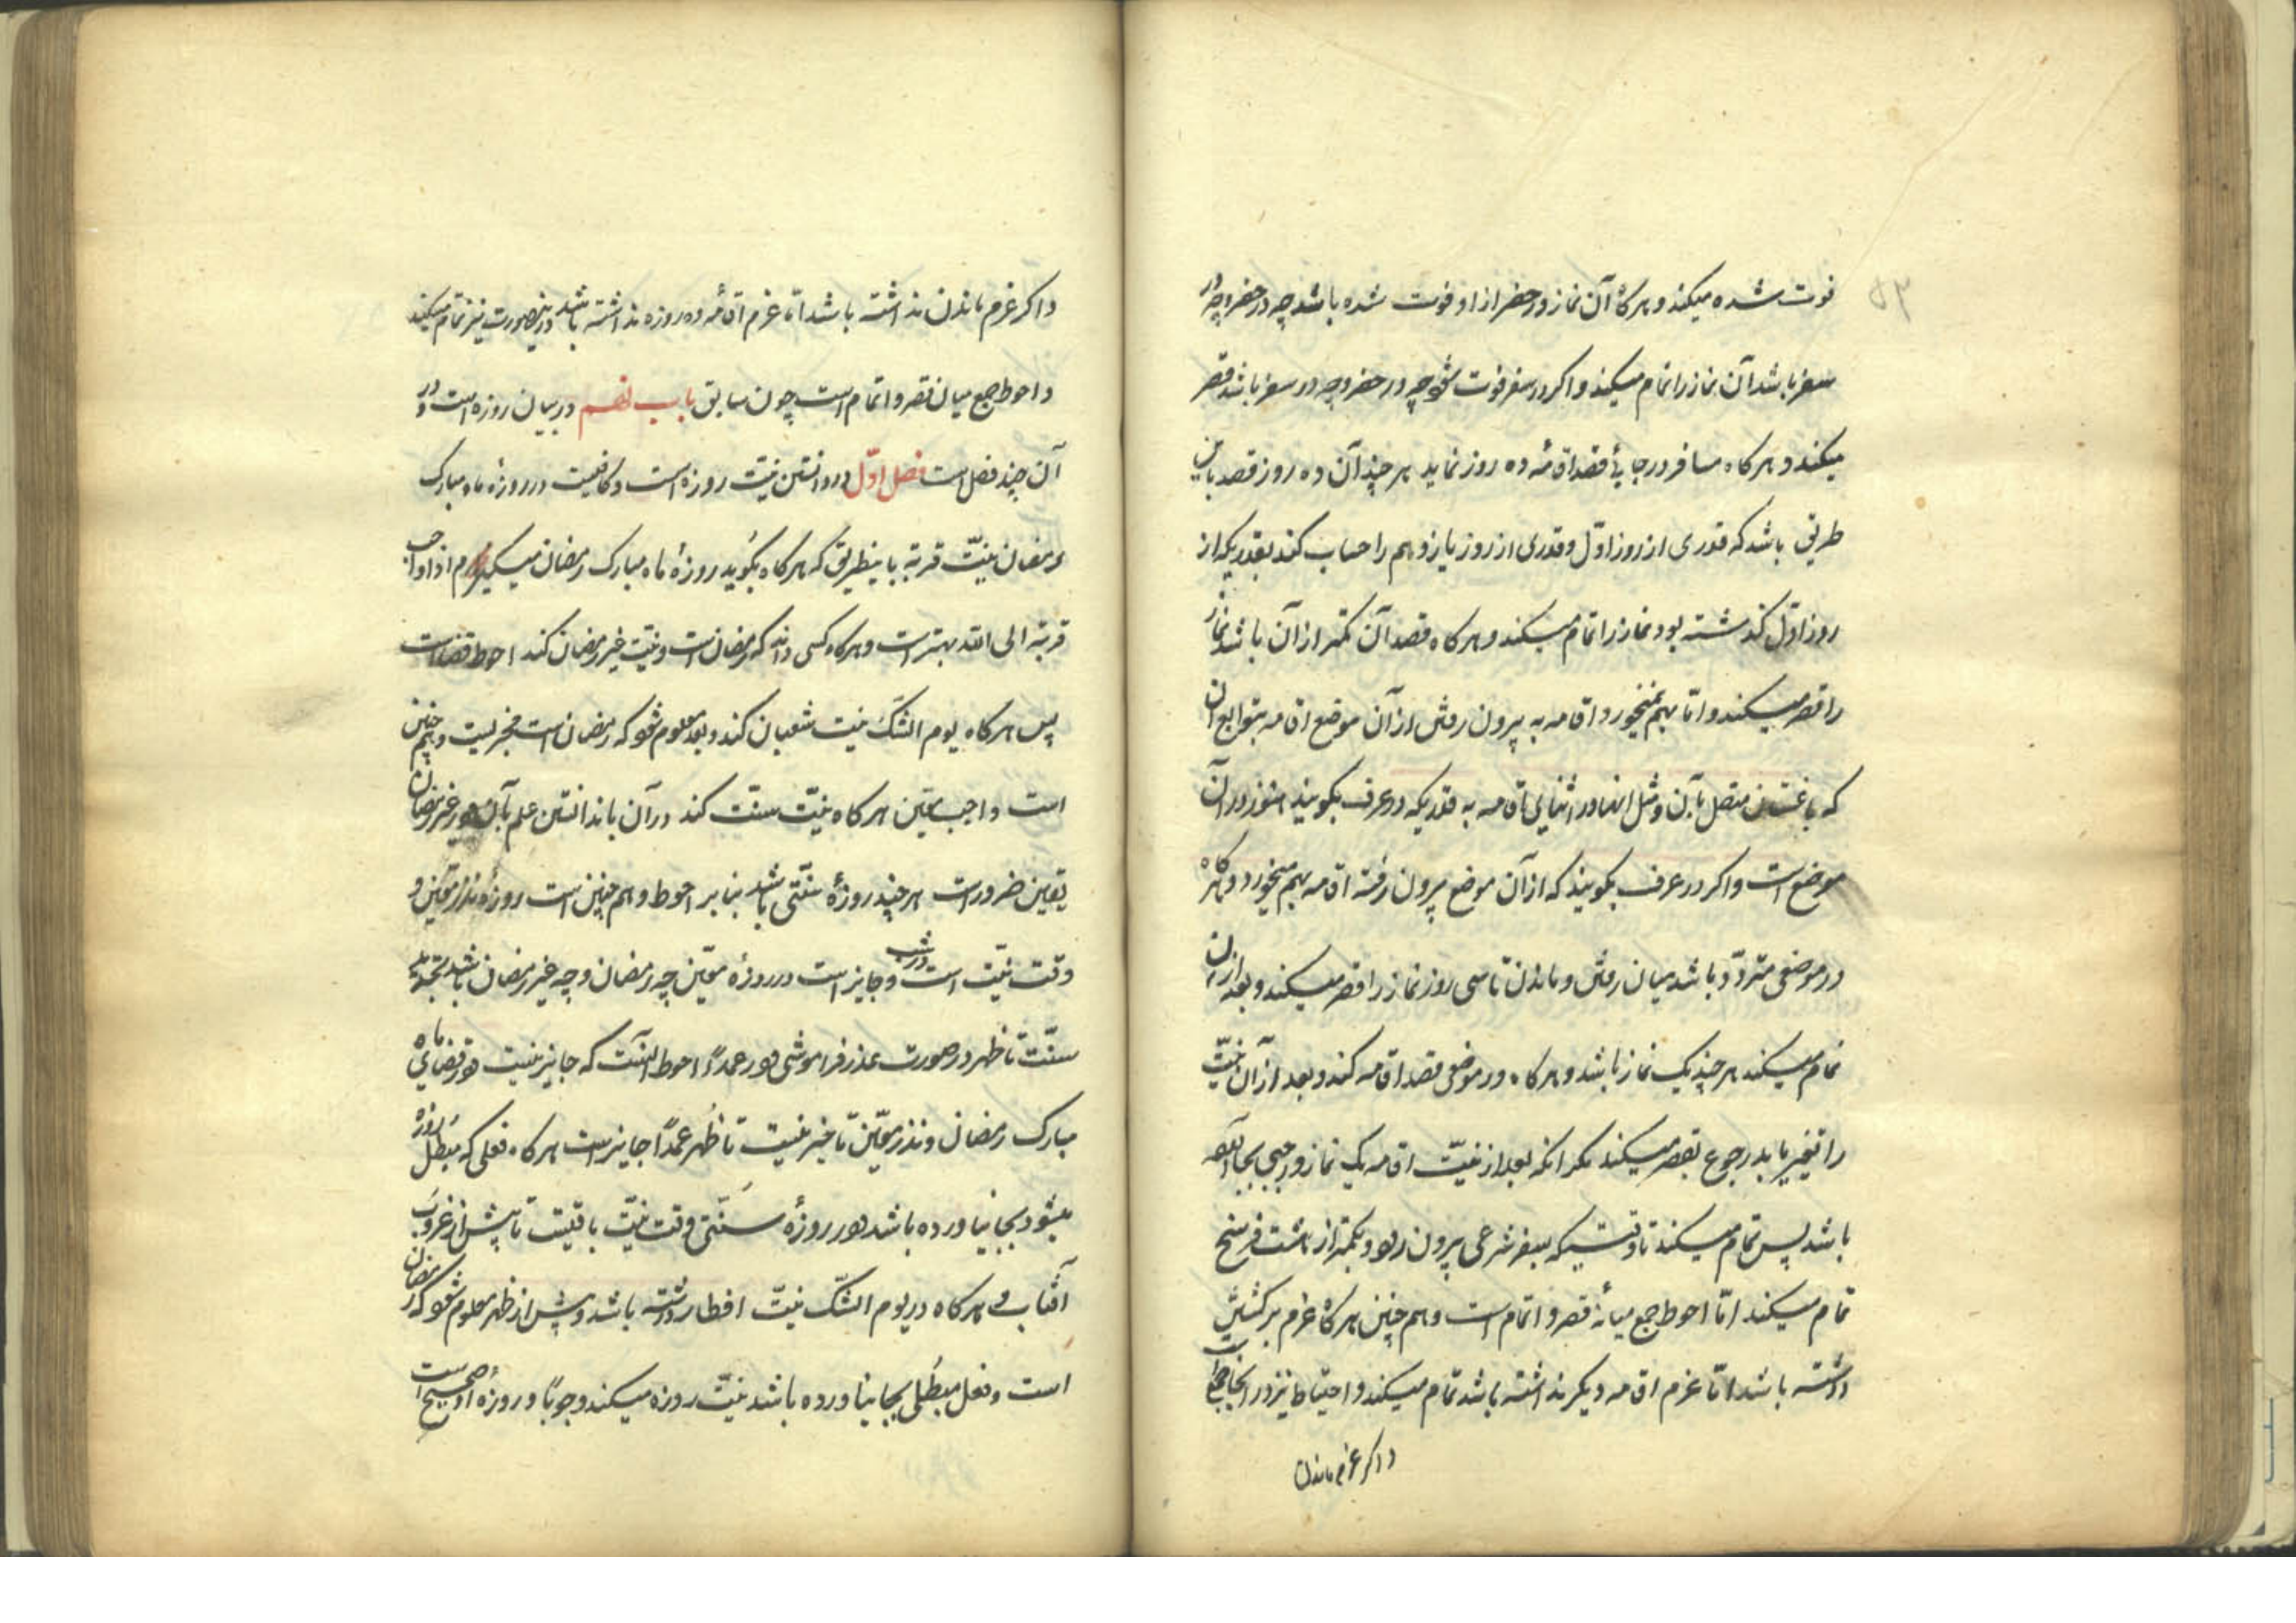 ۵۳
فوت شده میکند و هرگاه آن نماز در حضر از او فوت شده باشد چه در حضر و چه در
سفر باشد آن نماز را تمام میکند و اکر در سفر فوت شود چه در حضر و چه در سفر باشد قصر
میکند و هر کاه مسافر در جایی قصد اقامهٔ ده روز نماید هر چند آن ده روز قصد باین
طریق باشد که قدری از روز اوّل و قدری از روز یازدهم را حساب کند بقدریکه از
روز اوّل کذشته بود نماز را تمام میکند و هر کاه قصد آن کمتر از آن باشد نماز
را قصر میکند و امّا بهم نمیخورد اقامه به بیرون رفتن از آن موضع اقامه بتوابع آن
که باغستان متصل بآن و مثل اینها در اثنای اقامه به قدریکه در عرف بکویند هنوز در آن
موضع است و اکر در عرف بکویند که از آن موضع بیرون رفته اقامه بهم میخورد و هرگاه
در موضعی متردّد باشد میان رفتن و ماندن تا سی روز نماز را قصر میکند و بعد از آن
تمام میکند هر چند یک نماز باشد و هر کاه در موضعی قصد اقامه کند و بعد از آن نیّت
را تغییر یابد رجوع بقصر میکند مکر انکه بعد از نیّت اقامه یک نماز واجبی بجا آورده
باشد پس تمام میکند تا وقتیکه بسفر شرعی بیرون رود و بکمتر از هشت فرسخ
تمام میکند امّا احوط جمع میانهٔ قصر و اتمام است و هم چنین هر کاه عزم برکشتن
داشته باشد امّا عزم اقامه دیکر نداشته باشد تمام میکند و احتیاط نیز در اینجا جمع است
و اکر عزم ماندن
و اکر عزم ماندن نداشته باشد امّا عزم اقامهٔ ده روزه نداشته باشد در اینصورت نیز تمام میکند
و احوط جمع میان قصر و اتمام است چون سابق باب نهم در بیان روزه است و در
آن چند فصل است فصل اوّل در دانستن نیّت روزه است و کافیست در روزهٔ ماه مبارک
رمضان نیّت قربة باینطریق که هر کاه بکوید روزهٔ ماه مبارک رمضان میکیرم اداء واجب
قربة الی الله بهتر است و هر کاه کسی داند که رمضان است و نیّت غیر رمضان کند احوط قضا است
پس هر کاه یوم الشک نیت شعبان کند و بعد معلوم شود که رمضان است مجزیست و هم چنین
است واجب معیّن هر کاه نیّت سنّت کند در آن با ندانستن علم بآن و در غیر رمضان
تعیین ضرور است هر چند روزهٔ سنّتی باشد بنا بر احوط و هم چنین است روزهٔ نذر معیّن و
وقت نیّت است در شب و جایز است در روزهٔ معیّن چه رمضان و چه غیر رمضان باشد تجدید
سنّت تا ظهر در صورت عذر فراموشی و در عمداً احوط آنست که جایز نیست و در قضای ماه
مبارک رمضان و نذر معیّن تأخیر نیت تا ظهر عمداً جایز است هر کاه فعلی که مبطل روزه
میشود بجا نیاورده باشد و در روزهٔ سنّتی وقت نیّت باقیست تا پیش از غروب
آفتاب و هر کاه در یوم الشّک نیّت افطار داشته باشد و پیش از ظهر معلوم شود که رمضان
است و فعل مبطلی بجا نیاورده باشد نیّت روزه میکند وجوباً و روزهٔ او صحیح است